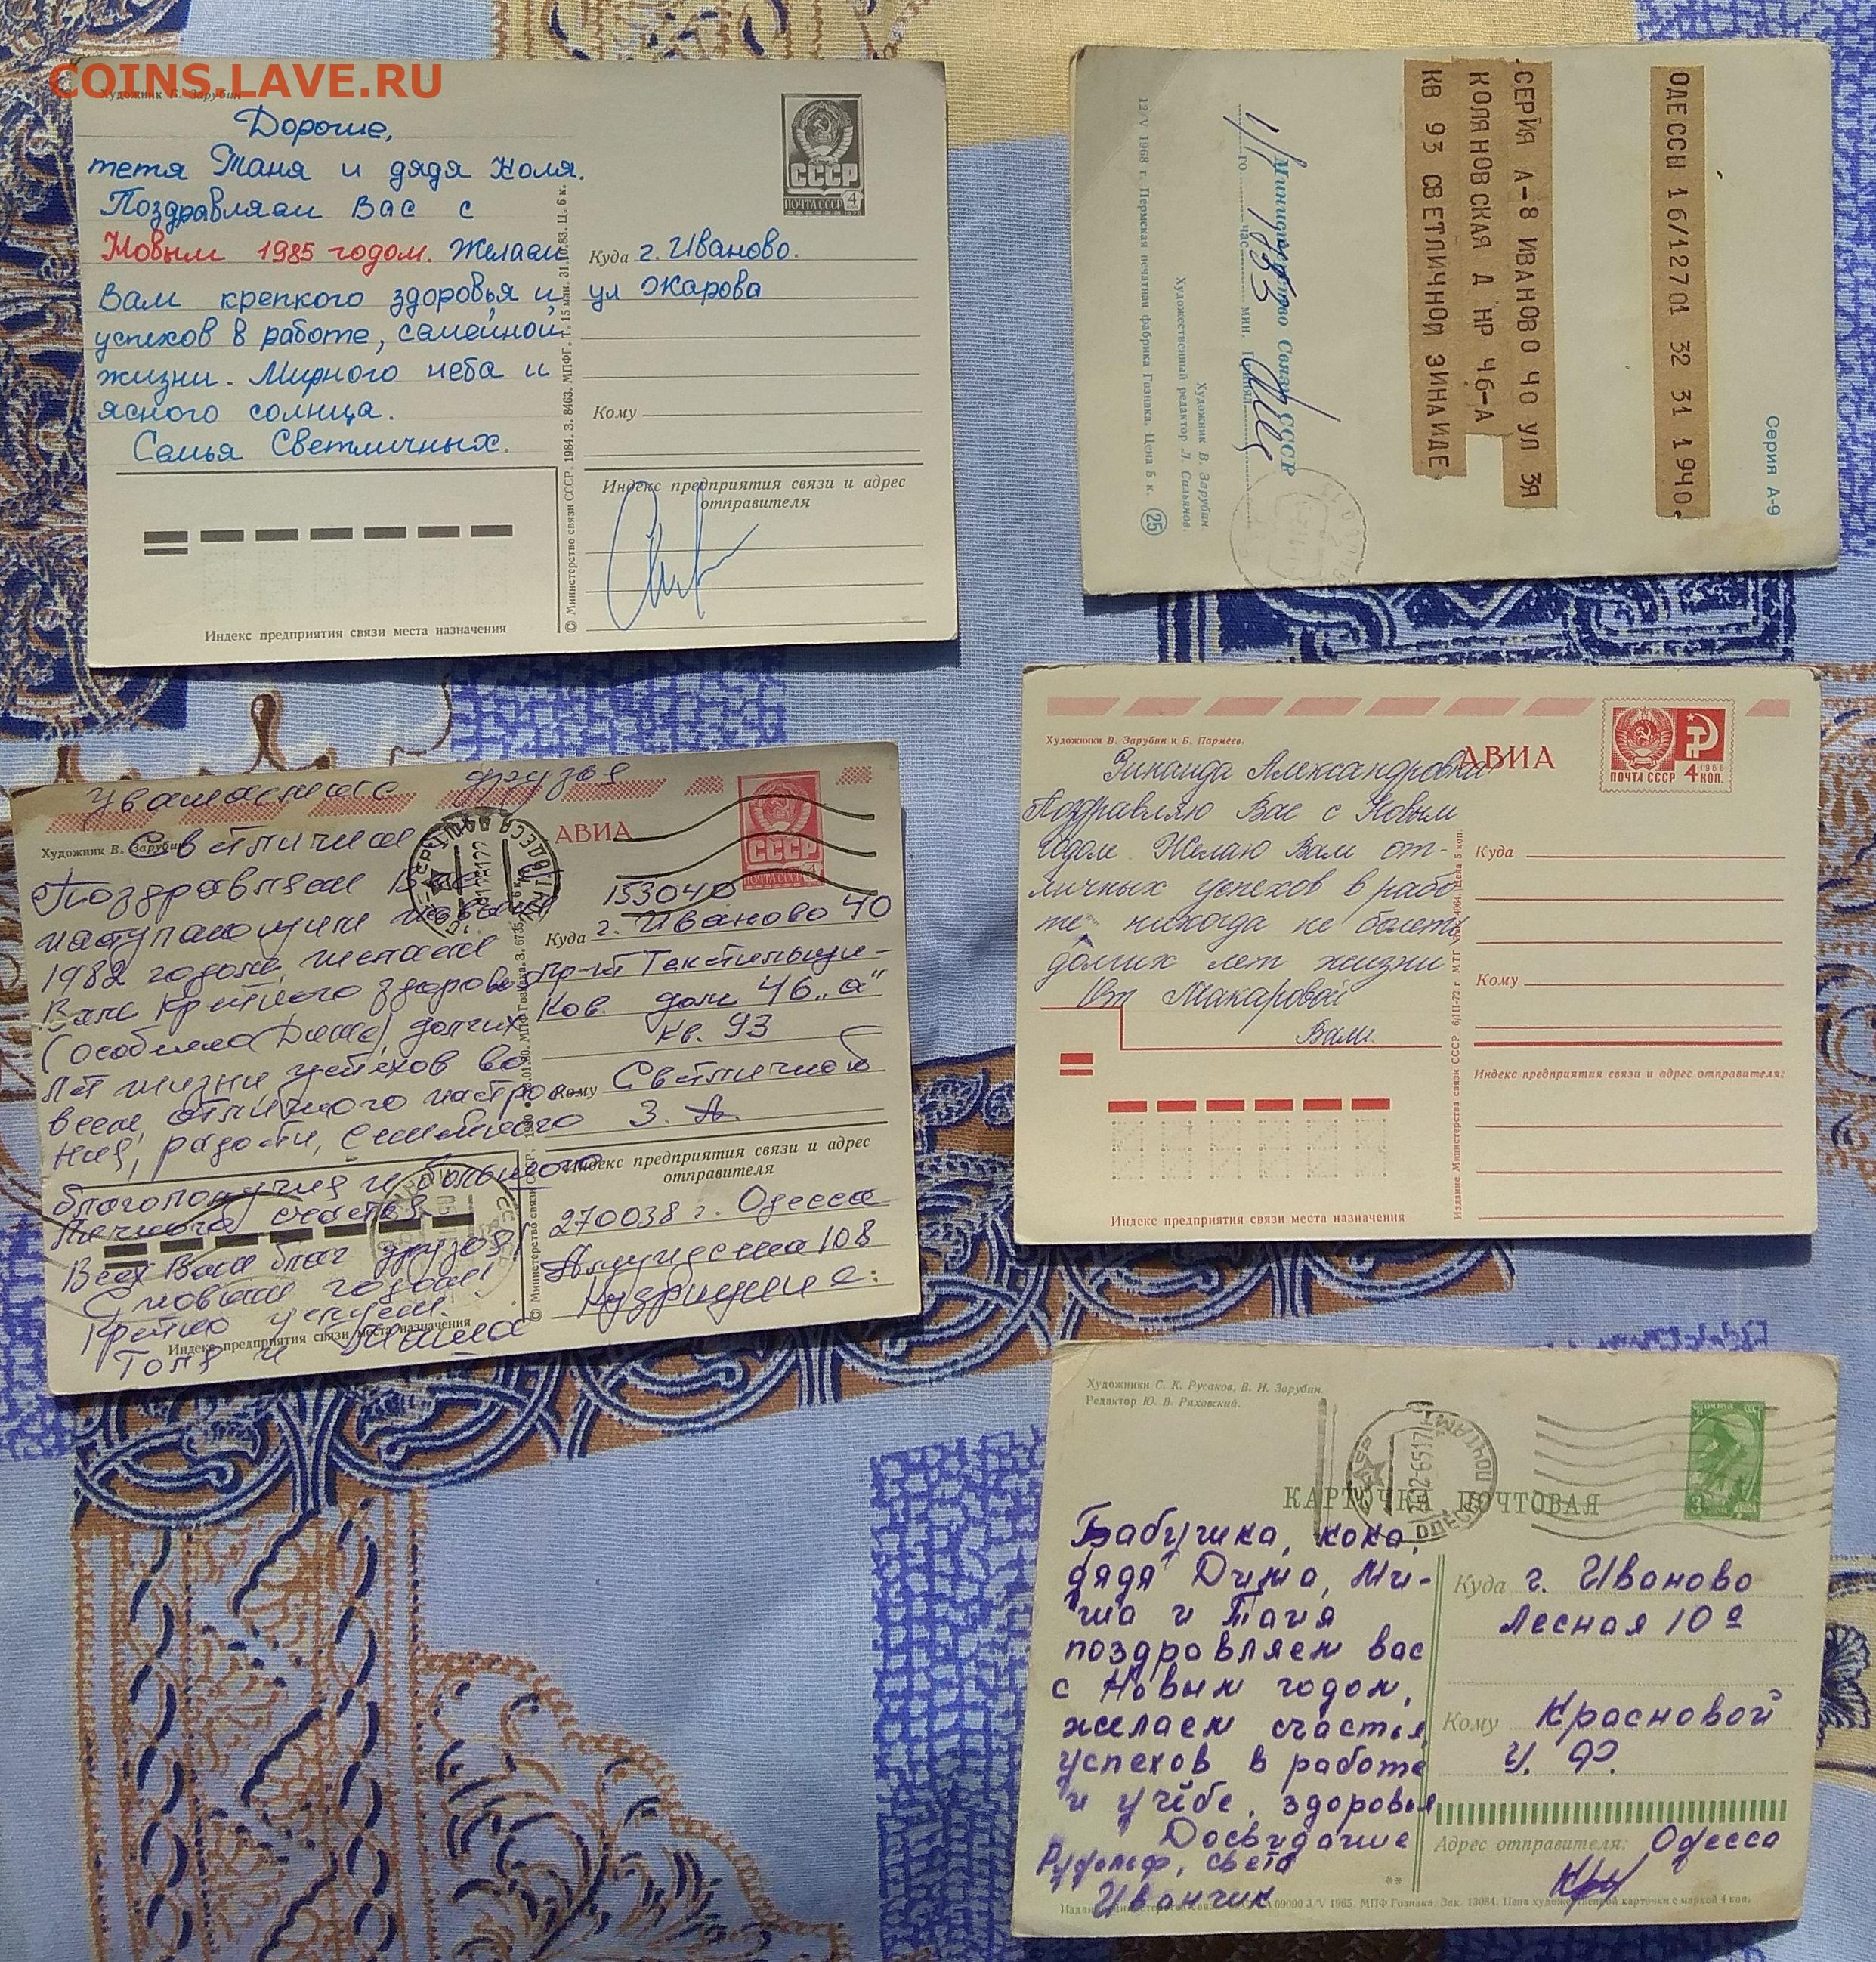 COINS.LAVE.RU
Художник В. Зарубин
Дорогие,
тетя Таня и дядя Коля.
Поздравляем Вас с
Новым 1985 годом. Желаем
Вам крепкого здоровья и
успехов в работе, семейной
жизни. Мирного неба и
ясного солнца.
Семья Светличных.
СССР
ПОЧТА СССР 4
Куда г. Иваново.
ул Жарова
Кому
Индекс предприятия связи и адрес
отправителя
Индекс предприятия связи места назначения
© Министерство связи СССР. 1984. З. 8463. МПФГ. Т. 15 млн. 31.10.83. Ц. 6 к.
ОДЕССЫ 16/12701 32 31 1940.
СЕРИЯ А-8 ИВАНОВО 40 УЛ ЗЯ
КОЛЯНОВСКАЯ Д НР 46-А
КВ 93 СВЕТЛИЧНОЙ ЗИНАИДЕ
Серия А-9
Министерство Связи СССР
го час. мин.
Художник В. Зарубин
Художественный редактор Л. Сальянов.
12/V 1968 г. Пермская печатная фабрика Гознака. Цена 5 к. 25
Художник В. Зарубин
АВИА
СССР
ПОЧТА СССР
друзья
Светличные
Поздравляем
наступающим новым
1982 годом, желаем
Вам крепкого здоровья
долгих
лет жизни успехов во
всем, отличного настрое-
ния, радости, семейного
благополучия и большого
личного счастья
Всех Вам благ друзья!
С новым годом!
Толя и
153040
Куда г. Иваново 40
пр-кт Текстильщи-
ков. дом 46 „а"
кв. 93
Кому Светличной
З. А.
Индекс предприятия связи и адрес
отправителя
270038 г. Одесса
108
Индекс предприятия связи места назначения
© Министерство связи СССР.
Художники В. Зарубин и Б. Пармеев.
АВИА
ПОЧТА СССР 4 КОП.
1966
Зинаида Александровна
Поздравляю Вас с Новым
годом. Желаю Вам от-
личных успехов в рабо
те, никогда не болеть
долгих лет жизни
От Макаровой
Вали.
Куда
Кому
Индекс предприятия связи и адрес отправителя:
Индекс предприятия связи места назначения
Издание Министерства связи СССР 6/III-72 г МТГ 4064. Цена 5 коп.
Художники С. К. Русаков, В. И. Зарубин.
Редактор Ю. В. Ряховский.
КАРТОЧКА ПОЧТОВАЯ
Бабушка, кока,
дядя Дима, Ми-
ша и Таня
поздравляем вас
с Новым годом,
желаем счастья,
успехов в работе
и учёбе, здоровья
Досвидание
Рудольф, света
Иванчик
Куда г. Иваново
Лесная 10а
Кому Красновой
У. Ф.
Адрес отправителя: Одесса
09000 3/V 1965. МПФ Гознака. Зак. 13084. Цена художественной карточки с маркой 4 коп.